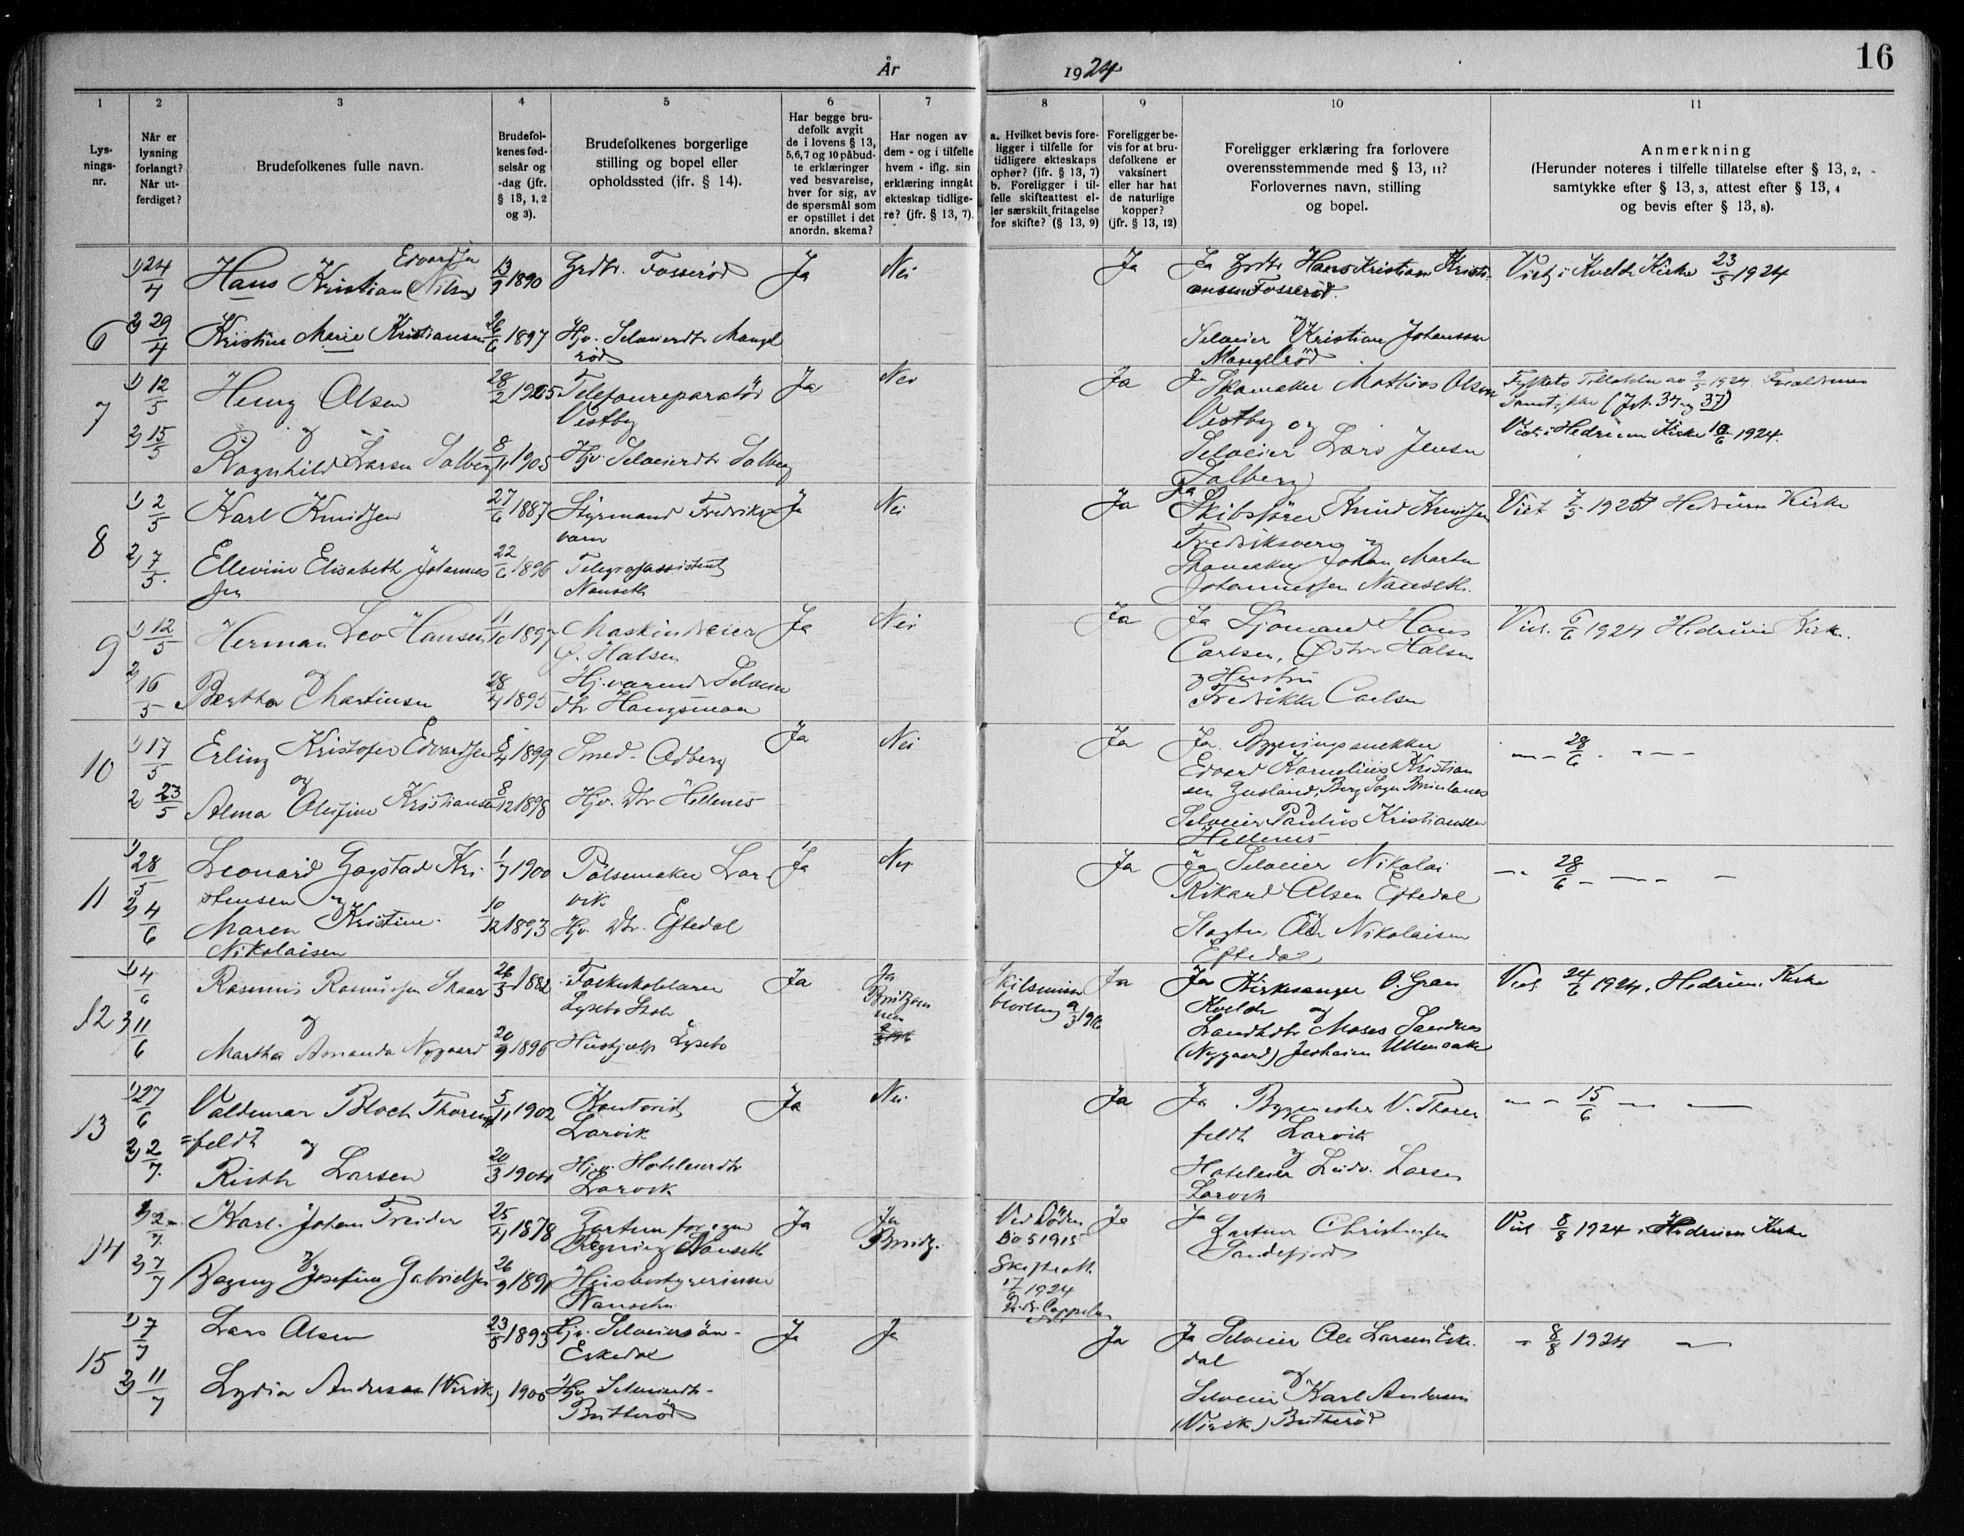 År 1924 16
1 2 3 4 5 6 7 8 9 10 11
Lys-
nings-
nr.
Når er
lysning
forlangt?
Når ut-
ferdiget?
Brudefolkenes fulle navn.
Brudefol-
kenes fød-
selsår og
-dag (jfr.
§ 13, 1, 2
og 3).
Brudefolkenes borgerlige
stilling og bopel eller
opholdssted (ifr. § 14).
Har begge bru-
defolk avgit
de i lovens § 13,
5,6,7 og 10 påbud-
te erklæringer
ved besvarelse,
hver for sig, av
de spørsmål som
er opstillet i det
anordn. skema?
Har nogen av
dem - og i tilfelle
hvem - iflg. sin
erklæring inngått
ekteskap tidlige-
re? (jfr. § 13, 7).
a. Hvilket bevis fore-
ligger i tilfelle for
tidligere ekteskaps
ophør? (jfr. § 13, 7)
b. Foreligger i til-
felle skifteattest el-
ler særskilt fritagelse
for skifte? (§ 13, 9)
Foreligger be-
vis for at bru-
defolkene er
vaksinert
eller har hat
de naturlige
kopper?
(jfr. § 13, 12)
Foreligger erklæring fra forlovere
overensstemmende med § 13, 11?
Forlovernes navn, stilling
og bopel.
Anmerkning
(Herunder noteres i tilfelle tillatelse efter § 13, 2,
samtykke efter § 13, 3, attest efter § 13, 4
og bevis efter § 13, 8).
6
1) 24/4
2) 29/4
Edvardsen
Hans Kristian (Nilsen)
Kristine Marie Kristiansen
13/9 1890
26/6 1897
Grdbr. Fosserød
Hjv. Selveierdtr Mangel
rød
Ja
Nei
Ja
Ja Grdbr Hans Kristian Kristi-
ansen Fosserød.
og
Selveier Kristian Johansen
Mangelrød
Viet i Kvelde Kirke 23/5 1924
7
1) 12/5
2) 15/5
Henry Olsen
og
Ragnhild Larsen Solberg
28/2 1905
8/11 1905
Telefonreparatør
Vestby
Hjv. Selveierdtr Solberg
Ja
Nei
Ja
Ja
Skomaker Mathias Olsen
Vestby og
Selveier Lars Jensen
Solberg
1924 Forældrenes
Samtykke (Jrf. 34 og 37)
Viet i Hedrum Kirke 1924.
8
1) 2/5
2) 7/5.
Karl Knudsen
Ellevine Elisabeth Johannes
sen
27/6 1887
22/6 1896
Styrmand Fredriks
værn
Telegrafassistent
Nanseth
Ja
Nei
Ja
Ja
Skibsfører Knud Knudsen
Fredriksværn og
Skomaker Johan Martin
Johannessen Nanseth.
Viet 7/5 Hedrum Kirke
9
1) 12/5
2) 16/5
Herman Leo Hansen
og
Bertha Martinsen
11/10 1897
28/4 1895
Maskindreier
Ø. Halsen
Hj. værende Selveier
dtr Haugsmoen
Ja
Nei
Ja
Ja Sjömand Hans
Carlsen, Østre Halsen
og Hustru
Fredrikke Carlsen
Viet. 6/6 1924 Hedrum Kirke.
10
1) 17/5
2 23/5
Erling Kristofer Edvardsen
og
Alma Olufine Kristiansen
5/4 1899
8/12 1898
Smed - Odberg
Hjv. Dtr Hellenes
Ja
Nei
Ja
Ja. Bygningssnekker
Edvard Kornelius Kristian
sen Gusland, Berg Sogn Brunlanes
og
Selveier Paulus Kristiansen
Hellenes
— „ — 28/6 . „ — —
11
1) 28/5
2) 4/6
Leonard Gogstad Kri-
stensen og
Maren Kristine
Nikolaisen
1/7 1900
10/12 1893
Pølsemaker Lar-
vik
Hjv. Dtr. Eftedal
Ja
Nei
Ja
Ja Selveier Nikolai
Rikard Olsen Eftedal
og
Slagter Ole Nikolaisen
Eftedal
— „ 28/6 — — — —
12
1) 4/6
2) 11/6
Rasmus Rasmussen Skaar
og
Martha Amanda Nygaard
26/3 1882
20/9 1896
Folkeskolelærer
Lysebo Skole
Hushjælp Lysebo
Ja
Ja
Brudgom
men
Skilsmisse
bevilling
Ja
Ja Kirkesanger O. Gran
Kvelde og
Landhdlr Moses Sandnes
(Nygaard) Jesheim Ullensaker
Viet 24/6 1924. Hedrum. Kirke
13
1) 27/6
2) 2/7.
Valdemar Bloch Thoren
=feldt
og
Ruth Larsen
5/11 1902
20/3 1904
Kontorist
Larvik
Hjv. Hoteleierdtr
Larvik
Ja
Nei
Ja
Ja Byggmester V. Thoren
feldt Larvik
og
Hoteleier Ludv. Larsen
Larvik
— „ — 15/6 — — —
14
1) 2/7
2) 7/7
Karl Johan Treider
og
Dagny Josefine Gabrielsen
25/4 1878
26/9 1891
Gartner for egen
Regning Nanseth
Husbestyrerinne
Nanseth
Ja
Ja
Brudg.
Ved Døden
1915
Skifteatt.
17/6 1924
Ja
Ja
Gartner Christensen
Sandefjord
Viet 8/8 1924. Hedrum Kirke
15
1) 7/7
2) 11/7
Lars Olsen
Lydia Andersen (Virik)
23/8 1895
1906
Hjv. Selveiersøn -
Eskedal
Hjv Selveierdtr -
Butterød
Ja
Ja
Ja
Ja Selveier Ole Larsen Eske-
dal
og
Selveier Karl Andersen
(Virik) Butterød
„ 8/8 1924 — „ —